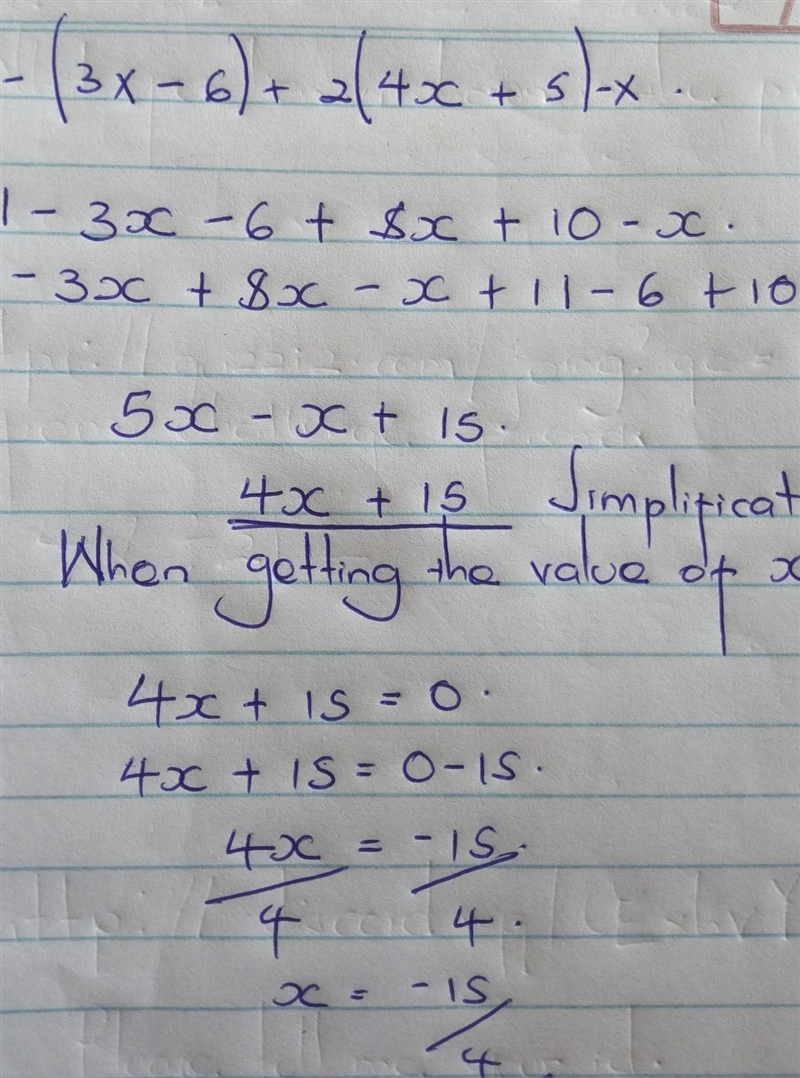 - (3x - 6) + 2(4x + 5) - x .
1 - 3x - 6 + 8x + 10 - x .
- 3x + 8x - x + 11 - 6 + 10
5x - x + 15 .
4x + 15 Simplificat
When getting the value of x
4x + 15 = 0 .
4x + 15 = 0 - 15 .
4x/4 = -15/4 .
x = -15/4 .